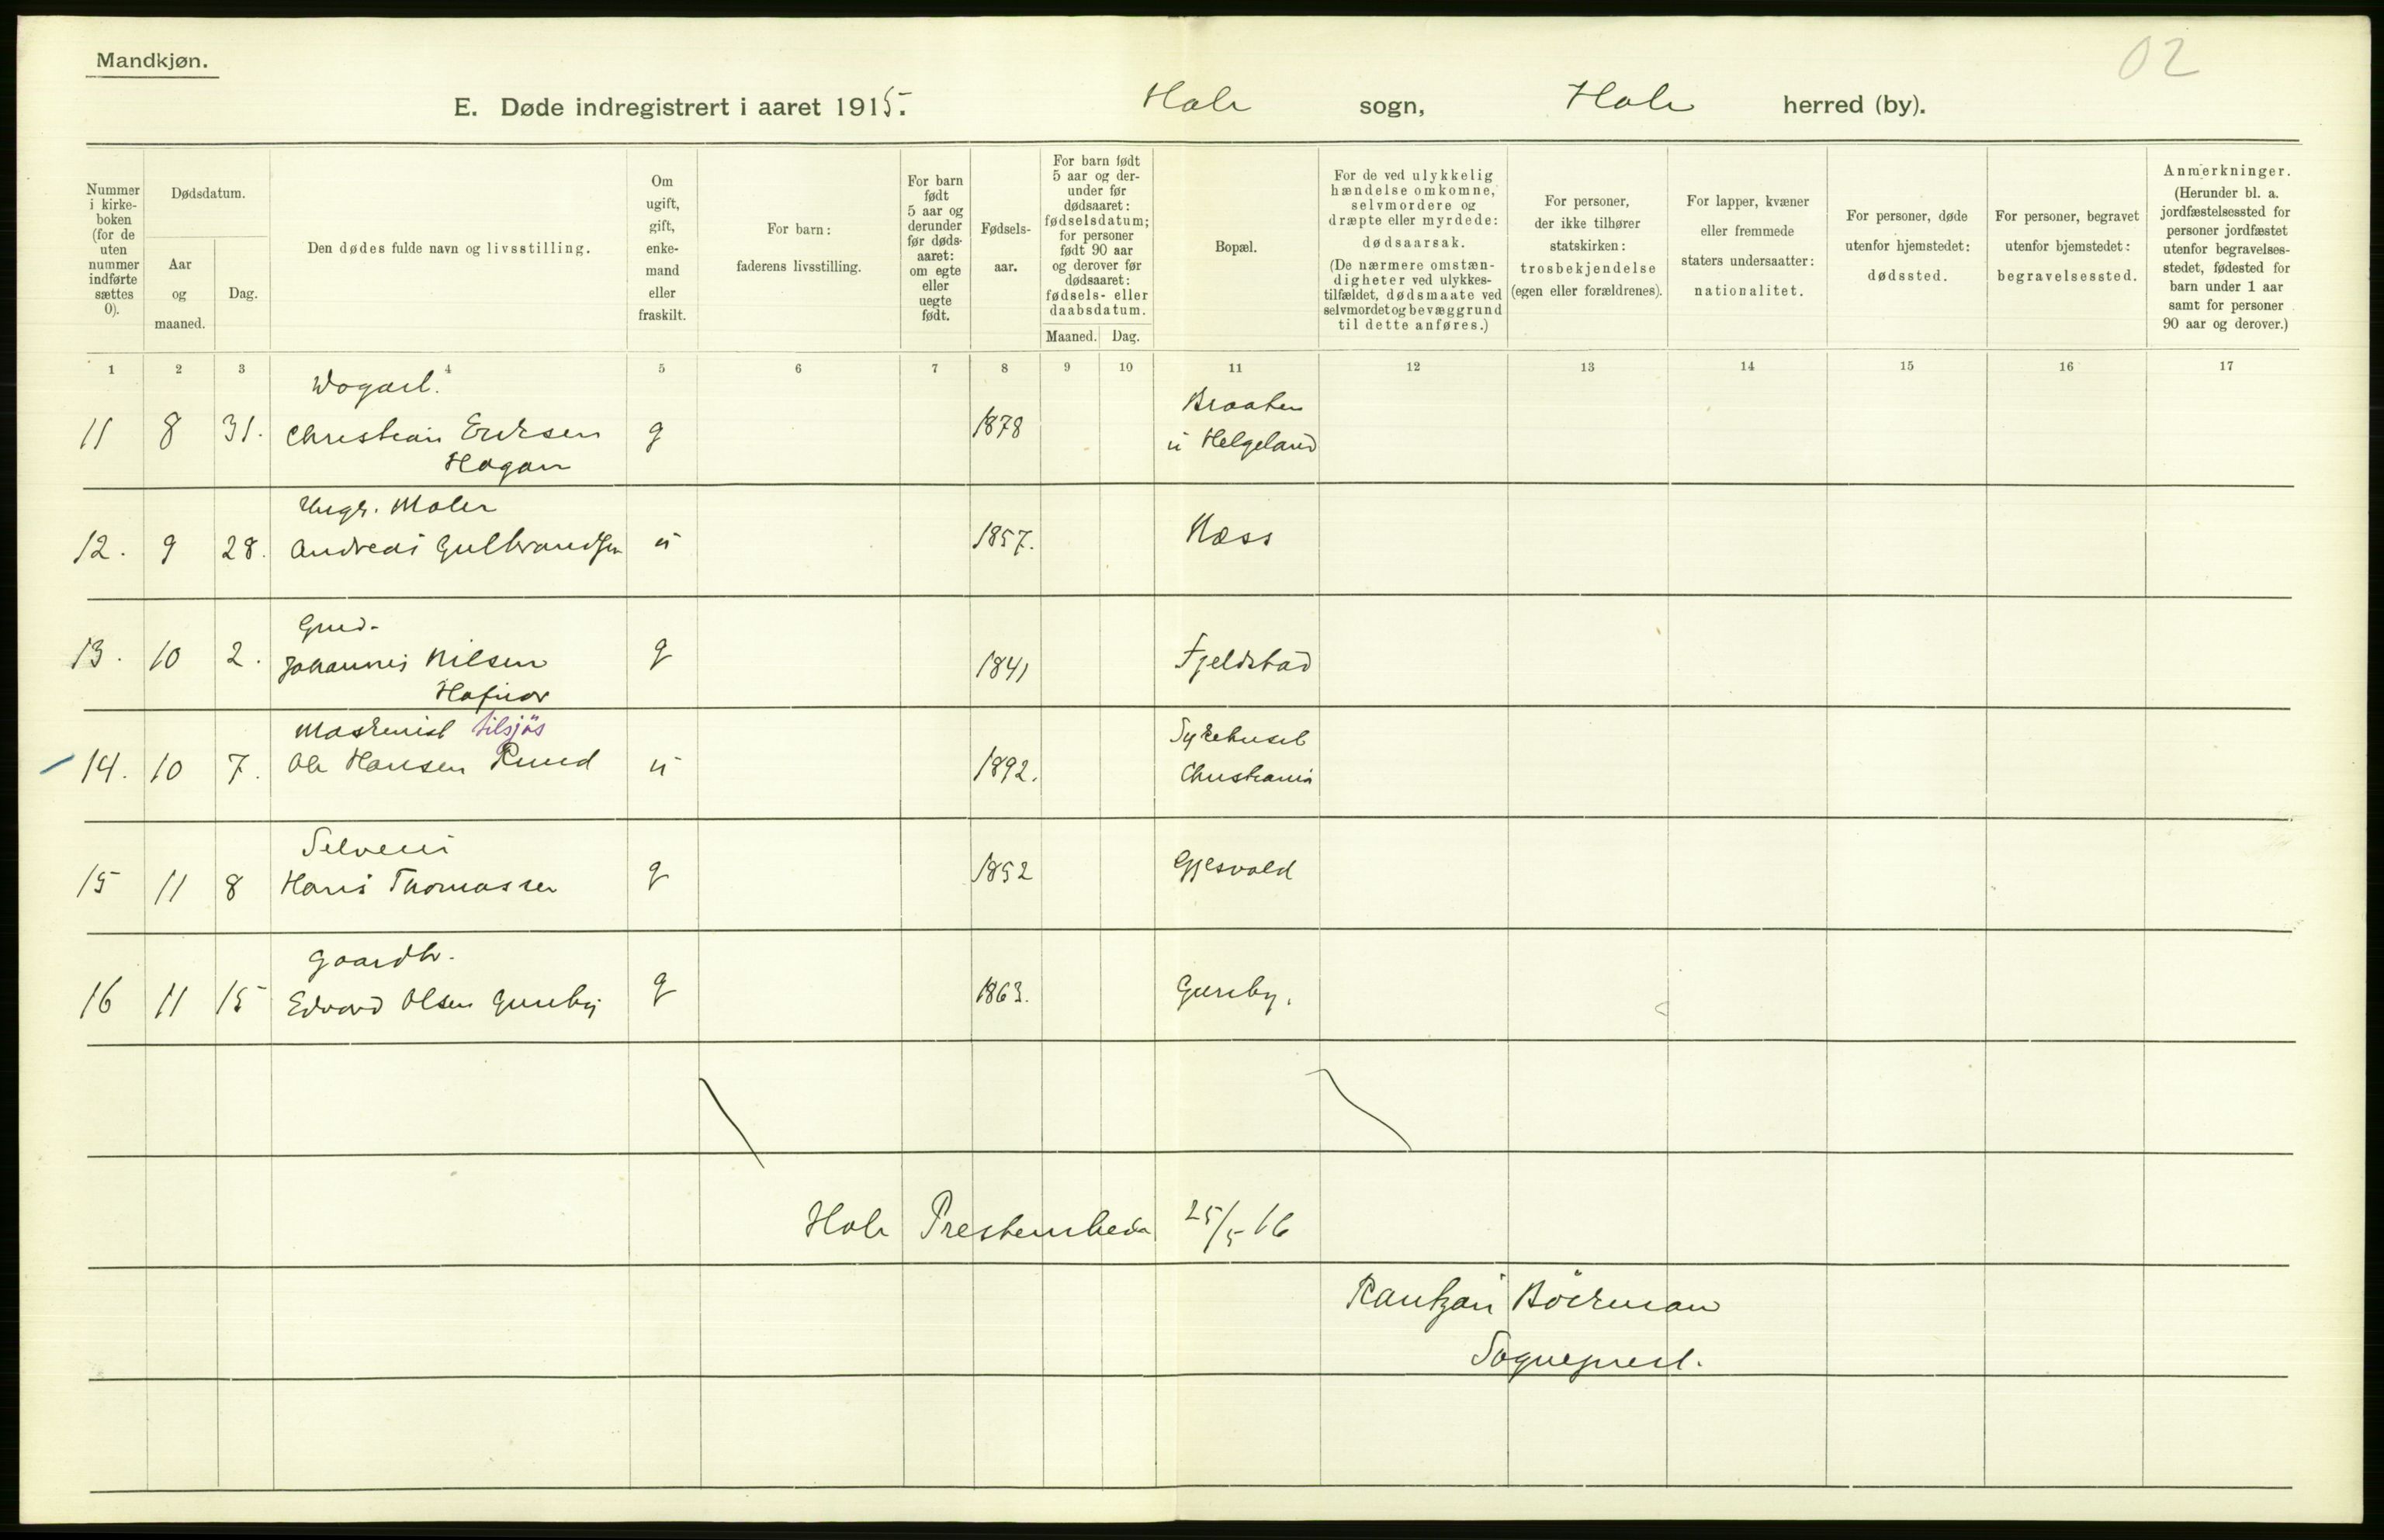 Mandkjøn.
02
E. Døde indregistrert i aaret 1915. Hole sogn, Hole herred (by).
Nummer i kirke-boken (for de uten nummer indførte sættes 0).
Dødsdatum.
Aar og maaned.
Dag.
Den dødes fulde navn og livsstilling.
Om ugift, gift, enke-mand eller fraskilt.
For barn: faderens livsstilling.
For barn født 5 aar og derunder før døds-aaret: om egte eller uegte født.
Fødsels-aar.
For barn født 5 aar og der-under før dødsaaret: fødselsdatum; for personer født 90 aar og derover før dødsaaret: fødsels- eller daabsdatum.
Maaned. Dag.
Bopæl.
For de ved ulykkelig hændelse omkomne, selvmordere og dræpte eller myrdede: dødsaarsak. (De nærmere omstæn-digheter ved ulykkes-tilfældet, dødsmaate ved selvmordet og bevæggrund til dette anføres.)
For personer, der ikke tilhører statskirken: trosbekjendelse (egen eller forældrenes).
For lapper, kvæner eller fremmede staters undersaatter: nationalitet.
For personer, døde utenfor hjemstedet: dødssted.
For personer, begravet utenfor hjemstedet: begravelsessted.
Anmerkninger. (Herunder bl. a. jordfæstelsessted for personer jordfæstet utenfor begravelses-stedet, fødested for barn under 1 aar samt for personer 90 aar og derover.)
1 2 3 4 5 6 7 8 9 10 11 12 13 14 15 16 17
Braaten
11 8 31. Christian Eriksen g 1878 u Helgeland
Hagan
Ungk. Maler
12. 9 28. Andreas Gulbrandsen u 1857. Næss
13. 10 2. Johannes Nilsen g 1841 Fjeldstad
Maskinist tilsjøs Sykehuset
14. 10 7. Ole Hansen Rund u 1892. Christiania
Selveier
15 11 8 Hans Thomassen g 1852 Gjesvold
Gaardbr.
16 11 15 Edvard Olsen Gureby g 1863. Gureby.
Hole Prestembede 25/5 16
Rantzau Böckman
Sogneprest.